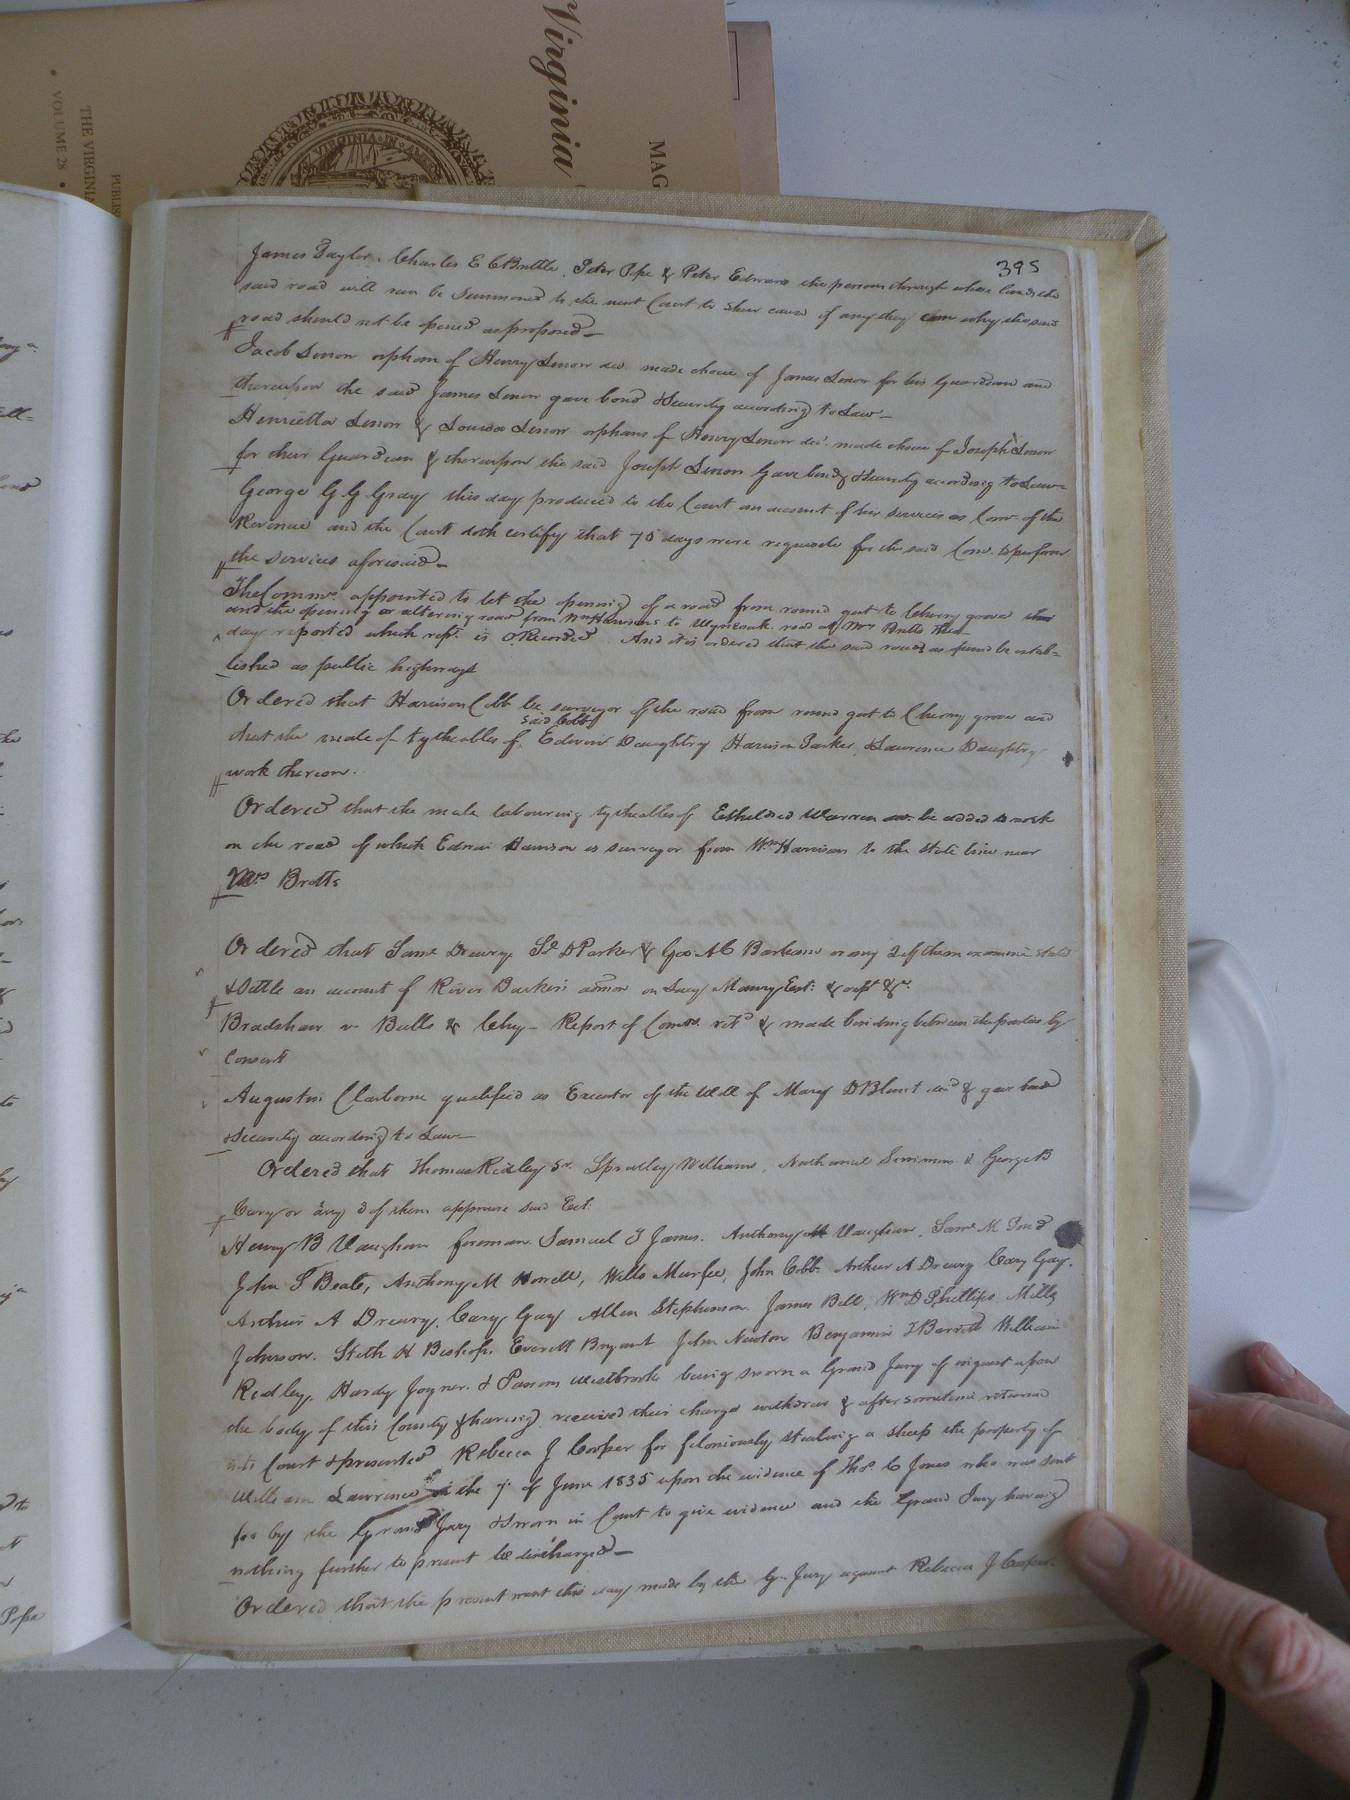 Virginia
MAG
VOLUME 28
THE VIRGINIA
PUBLIS
VIRGINIA IN
395
James Taylor, Charles E C Buttle, Peter Pope & Peter Edwards the persons through whose lands the
said road will run be summoned to the next Court to shew cause if any they can why the said
road should not be opened as proposed—
Jacob Simon orphan of Henry Simon decd made choice of James Simon for his Guardian and
thereupon the said James Simon gave bond & Security according to Law—
Henrietta Simon & Louisa Simon orphans of Henry Simon decd. made choice of Joseph Simon
for their Guardian & thereupon the said Joseph Simon gave bond & Security according to Law—
George G G Gray this day produced to the Court an account of his services as Comr. of the
Revenue and the Court doth certify that 75 days were requisite for the said Comr. to perform
the services aforesaid—
The Commrs. appointed to let the opening of a road from round gut to Cherry grove this
and the opening or altering road from Wm Harrisons to road at Mrs Britts
day reported which rept. is Recorded. And it is ordered that the said roads as opened be estab=
lished as public highways
Ordered that Harrison Cobb be surveyor of the road from round gut to Cherry grove and
said Cobb
that the male tytheables of Edwin Daughtry Harrison Parker, & Lawrence Daughtry
work thereon.
Ordered that the male labouring tytheables of Etheldred Warren be added to work
on the road of which Edwin Harrison is surveyor from Wm Harrison to the State line near
Mrs Britts
Ordered that Saml Drewry, Sl D Parker & Geo: A C Barham or any 2 of them examine state
& Settle an account of River Barkers admon on Lucy Maury Est: & rept &c.
Bradshaw v Bulls & Chy— Report of Comrs. retd & made binding between the parties by
Consent
Augustin Claiborne qualified as Executor of the Will of Mary D Blunt decd & gave bond
& security according to Law—
Ordered that Thomas Ridley Sr. Spratley Williams, Nathaniel Simmons & George B
Cary or any 3 of them appraise said Est:
Henry B Vaughan foreman. Samuel J James. Anthony M Vaughan, Saml M Pond
John S Beale, Anthony M Howell, Wills Murfee, John Cobb. Arthur A Drewry Cary Gay,
Arthur A Drewry, Cary Gay Allen Stephenson. James Bell, Wm D Phillips Mills
Johnson. Stith H Bishop. Everett Bryant John Newton Benjamin T Barrett William
Ridley, Hardy Joyner. & Parsons Westbrook being sworn a Grand Jury of inquest upon
the body of this County & having received their charge withdrew & after sometime returned
into Court & presented Rebecca J Cooper for feloniously stealing a sheep the property of
William Lawrence the 7 of June 1835 upon the evidence of Thos. C Jones who was sent
for by the Grand Jury & sworn in Court to give evidence and the Grand Jury having
nothing further to present be discharged—
Ordered that the presentment this day made by the Gr. Jury against Rebecca J Cooper
Pope